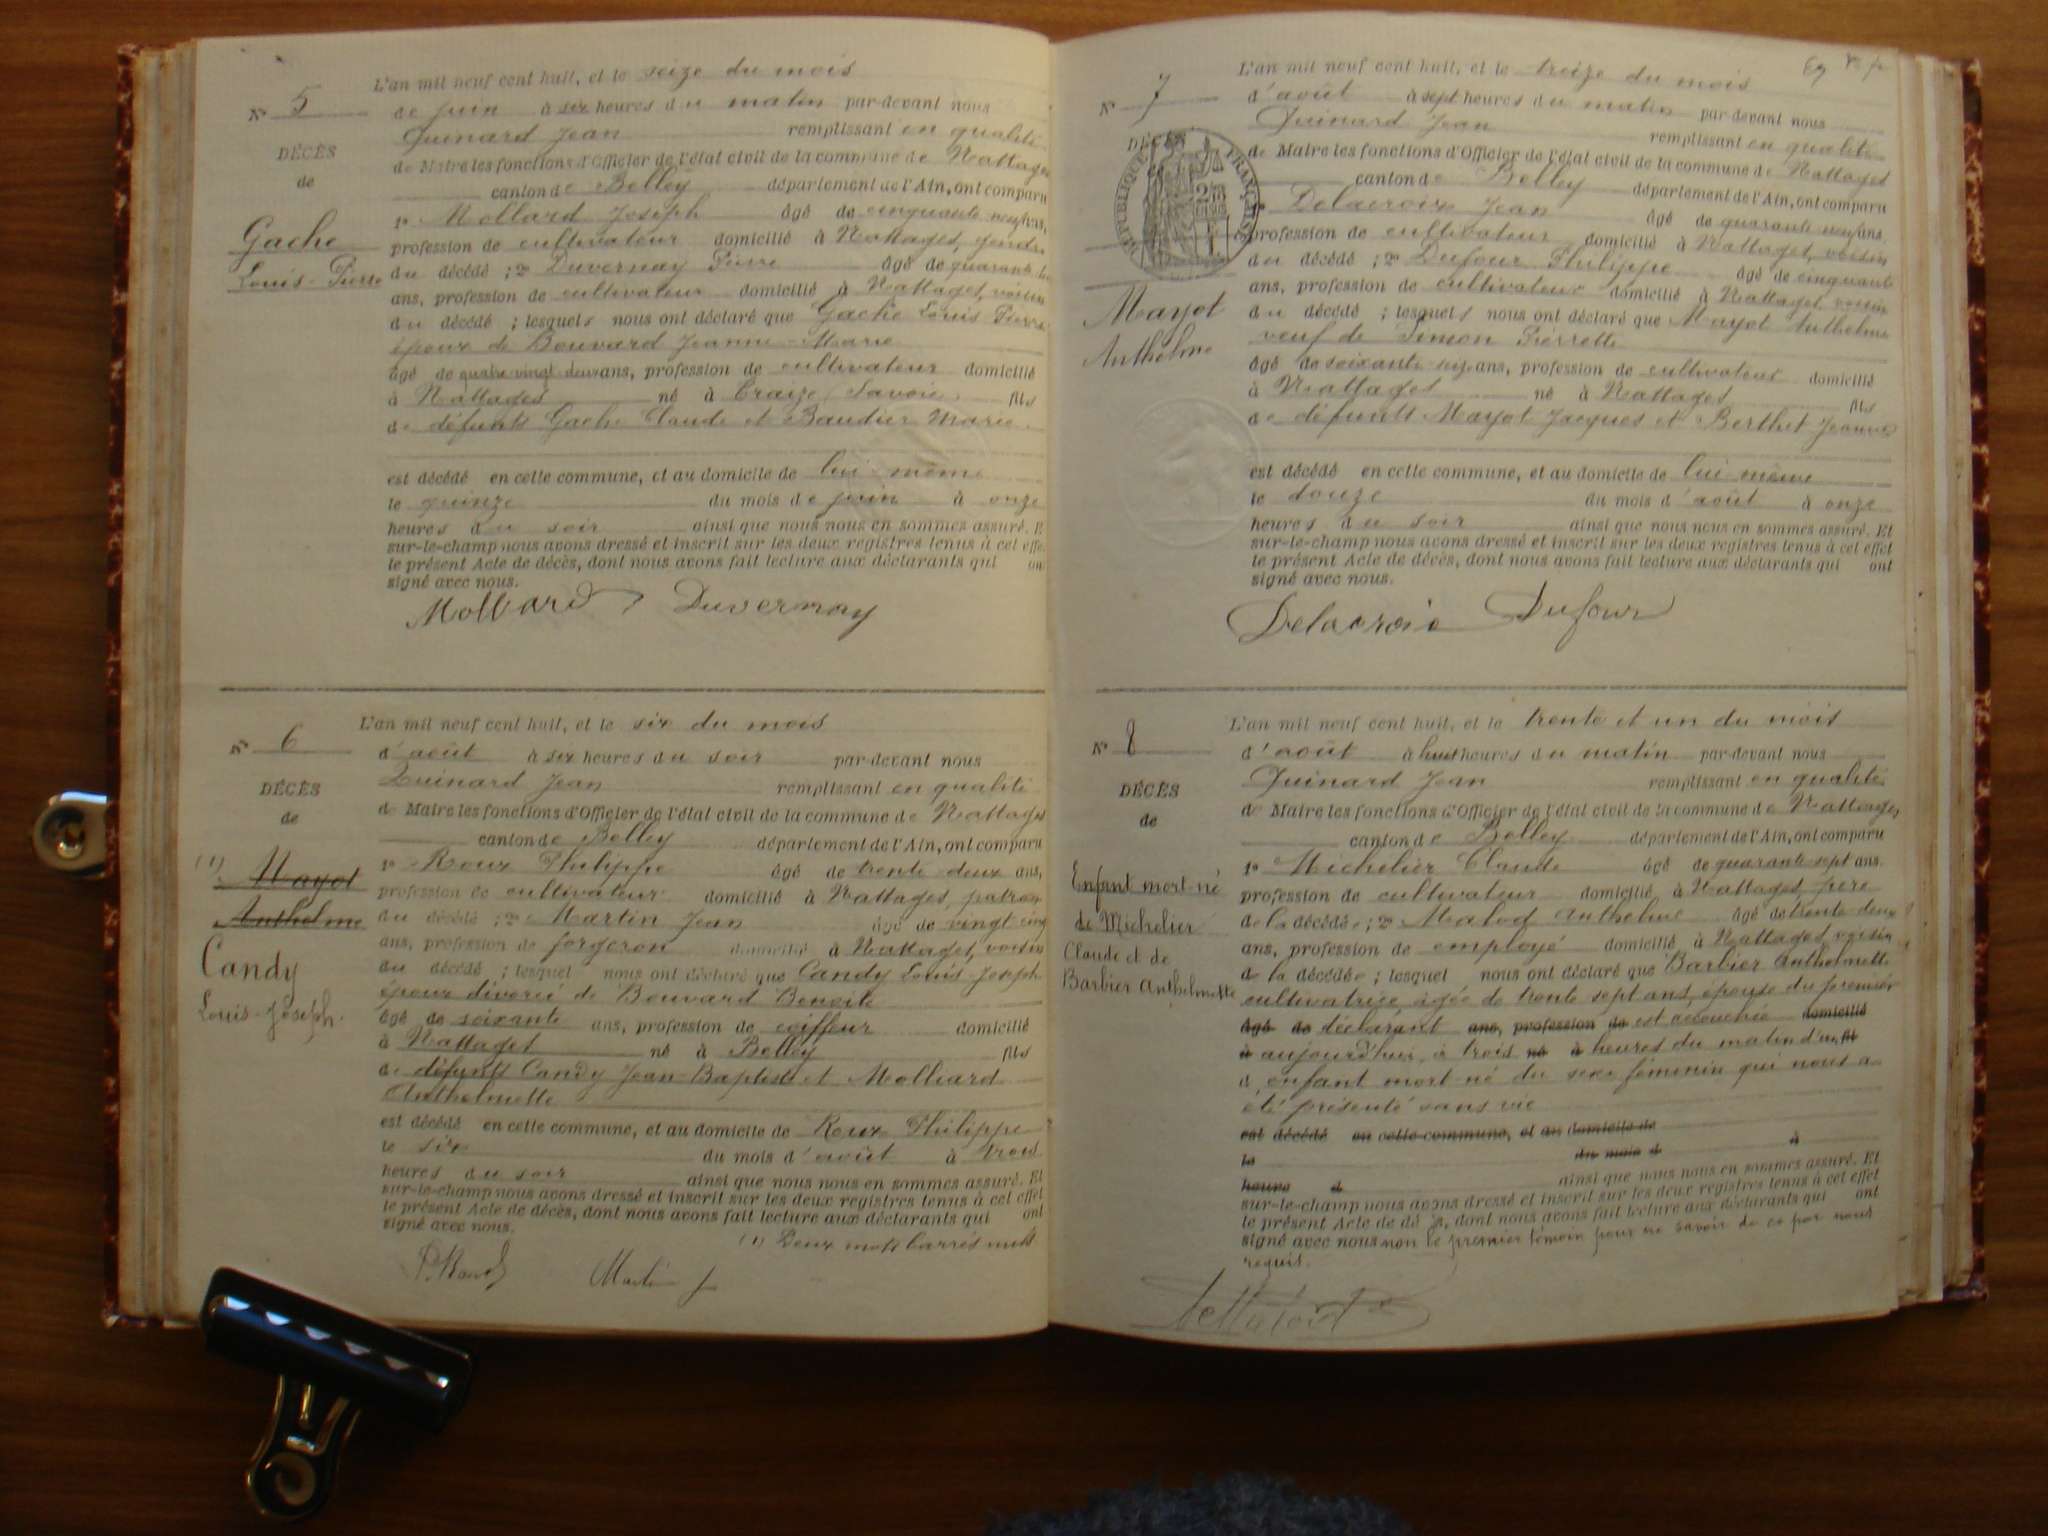 L'an mil neuf cent huit, et le seize du mois
N° 5
de juin à six heures du matin par-devant nous
Quinard Jean remplissant en qualité
DÉCÈS
de Maire les fonctions d'Officier de l'état civil de la commune de Nattages
de
canton de Belley département de l'Ain, ont comparu
1° Mollard Joseph âgé de cinquante neuf ans,
Gache
profession de cultivateur domicilié à Nattages, gendre
Louis-Pierre
du décédé ; 2° Duvernay Pierre âgé de quarante
ans, profession de cultivateur domicilié à Nattages, voisin
du décédé ; lesquels nous ont déclaré que Gache Louis Pierre
époux de Bouvard Jeanne-Marie
âgé de quatre vingt deux ans, profession de cultivateur domicilié
à Nattages né à Traize (Savoie) fils
de défunts Gache Claude et Baudier Marie
est décédé en cette commune, et au domicile de lui-même
le quinze du mois de juin à onze
heures du soir ainsi que nous nous en sommes assuré. E
sur-le-champ nous avons dressé et inscrit sur les deux registres tenus à cet effe
le présent Acte de décès, dont nous avons fait lecture aux déclarants qui on
signé avec nous.
Mollard Duvernay
L'an mil neuf cent huit, et le six du mois
N° 6
d'août à six heures du soir par-devant nous
Quinard Jean remplissant en qualité
DÉCÈS
de Maire les fonctions d'Officier de l'état civil de la commune de Nattages
de
canton de Belley département de l'Ain, ont comparu
(1) Mayot
1° Roux Philippe âgé de trente deux ans,
Anthelme
profession de cultivateur domicilié à Nattages, patron
du décédé ; 2° Martin Jean âgé de vingt cinq
Candy
ans, profession de forgeron domicilié à Nattages, voisin
Louis-Joseph.
du décédé ; lesquel nous ont déclaré que Candy Louis-Joseph
époux divorcé de Bouvard Benoîte
âgé de soixante ans, profession de coiffeur domicilié
à Nattages né à Belley fils
de défunts Candy Jean-Baptiste et Molliard
Anthelmette
est décédé en cette commune, et au domicile de Roux Philippe
le six du mois d'août à trois
heures du soir ainsi que nous nous en sommes assuré. Et
sur-le-champ nous avons dressé et inscrit sur les deux registres tenus à cet effet
le présent Acte de décès, dont nous avons fait lecture aux déclarants qui ont
signé avec nous.
(1) Deux mots barrés nuls
P. Roux Martin J
L'an mil neuf cent huit, et le treize du mois
N° 7
d'août à sept heures du matin par-devant nous
Quinard Jean remplissant en qualité
DÉCÈS
de Maire les fonctions d'Officier de l'état civil de la commune de Nattages
RÉPUBLIQUE FRANÇAISE
canton de Belley département de l'Ain, ont comparu
Delacroix Jean âgé de quarante neuf ans
profession de cultivateur domicilié à Nattages, voisin
du décédé ; 2° Dufour Philippe âgé de cinquante
ans, profession de cultivateur domicilié à Nattages, voisin
Mayot
du décédé ; lesquels nous ont déclaré que Mayot Anthelme
Anthelme
veuf de Simon Pierrette
âgé de soixante six ans, profession de cultivateur domicilié
à Nattages né à Nattages fils
de défunts Mayot Jacques et Berthet Jeanne
est décédé en cette commune, et au domicile de lui même
le douze du mois d'août à onze
heures du soir ainsi que nous nous en sommes assuré. Et
sur-le-champ nous avons dressé et inscrit sur les deux registres tenus à cet effet
le présent Acte de décès, dont nous avons fait lecture aux déclarants qui ont
signé avec nous.
Delacroix Dufour
L'an mil neuf cent huit, et le trente et un du mois
N° 8
d'août à huit heures du matin par-devant nous
Quinard Jean remplissant en qualité
DÉCÈS
de Maire les fonctions d'Officier de l'état civil de la commune de Nattages
de
canton de Belley département de l'Ain, ont comparu
1° Michelier Claude âgé de quarante sept ans.
Enfant mort-né
profession de cultivateur domicilié à Nattages, père
de Michelier
de la décédée ; 2° Malod Anthelme âgé de trente deux
Claude et de
ans, profession de employé domicilié à Nattages, voisin
Barbier Anthelmette
de la décédée ; lesquel nous ont déclaré que Barbier Anthelmette
cultivatrice âgée de trente sept ans, épouse du premier
âgé de déclarant ans, profession de est accouchée domicilié
à aujourd'hui à trois né à heures du matin d'un fil
d enfant mort-né du sexe féminin qui nous a
été présenté sans vie
est décédé en cette commune, et au domicile de
le du mois d à
heure d ainsi que nous nous en sommes assuré. Et
sur-le-champ nous avons dressé et inscrit sur les deux registres tenus à cet effet
le présent Acte de décès, dont nous avons fait lecture aux déclarants qui ont
signé avec nous non le premier témoin pour ne savoir de ce par nous
requis.